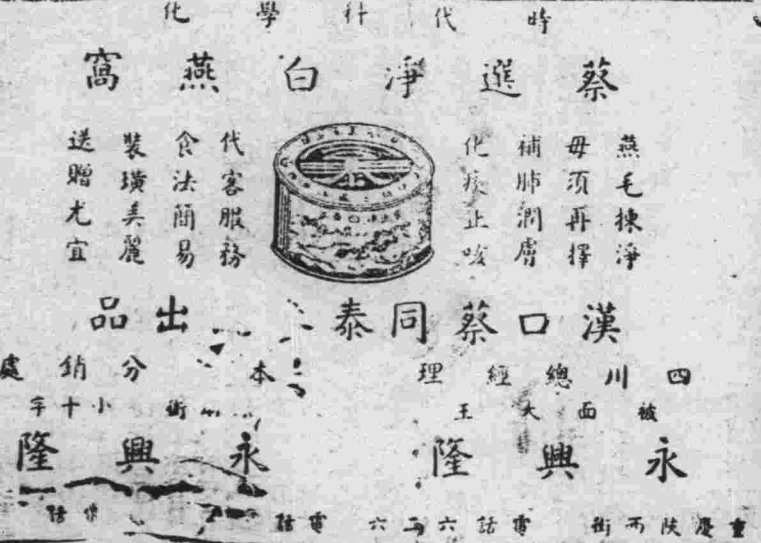 時代科學化
蔡選淨白燕窩
燕毛揀淨
毋須再擇
補肺潤膚
化痰止咳
代客服務
食法簡易
裝璜美麗
送贈尤宜
漢口蔡同泰 出品
四川總經理
被面大王
永興隆
重慶陝西街 電話六二六
本 分銷處
街 小十字
永興隆
電話